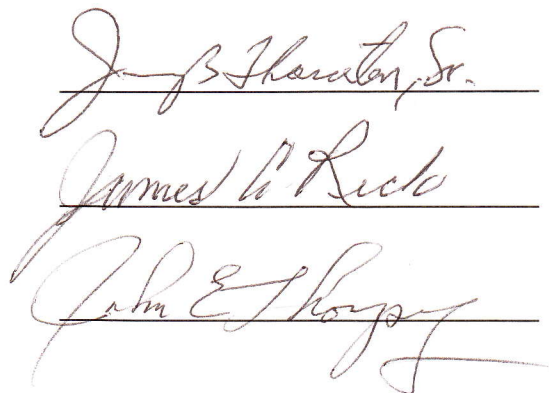 B Thornton, Sr.
James A Reck
John E Thompson